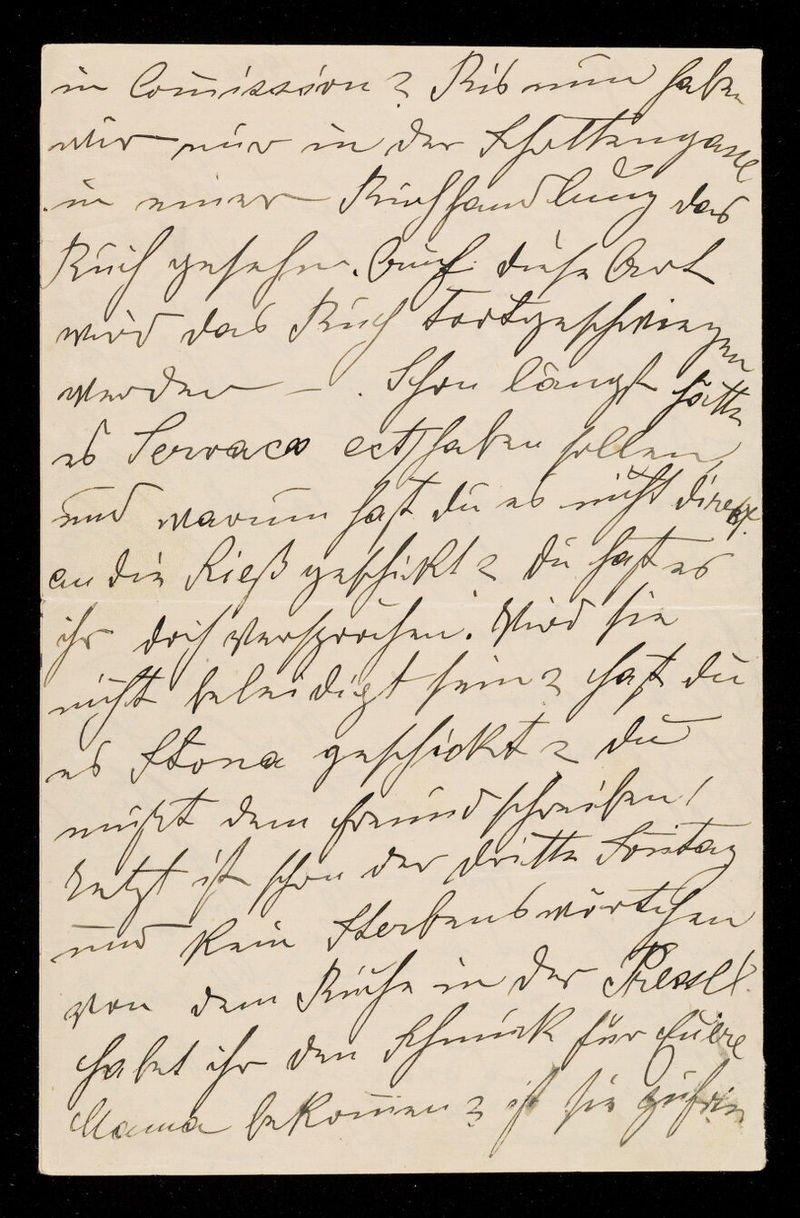 in Comission? Bis nun haben
wir nur in der Schottengasse
in einer Buchhandlung das
Buch gesehen. Auf diese Art
wird das Buch todtgeschwiegen
werden —. Schon längst hätte
es Servaes ect haben sollen,
und warum hast du es nicht direkt.
an die Rieß geschickt? du hast es
ihr doch versprochen. Wird sie
nicht beleidigt sein? hast du
es Stona geschickt? du
mußt dem Freund schreiben!
Jetzt ist schon der dritte Sontag
und kein Sterbenswörtchen
von dem Buche in der Presse!
habet ihr den Schmuck für Euere
Mama bekommen? ist sie zufrie